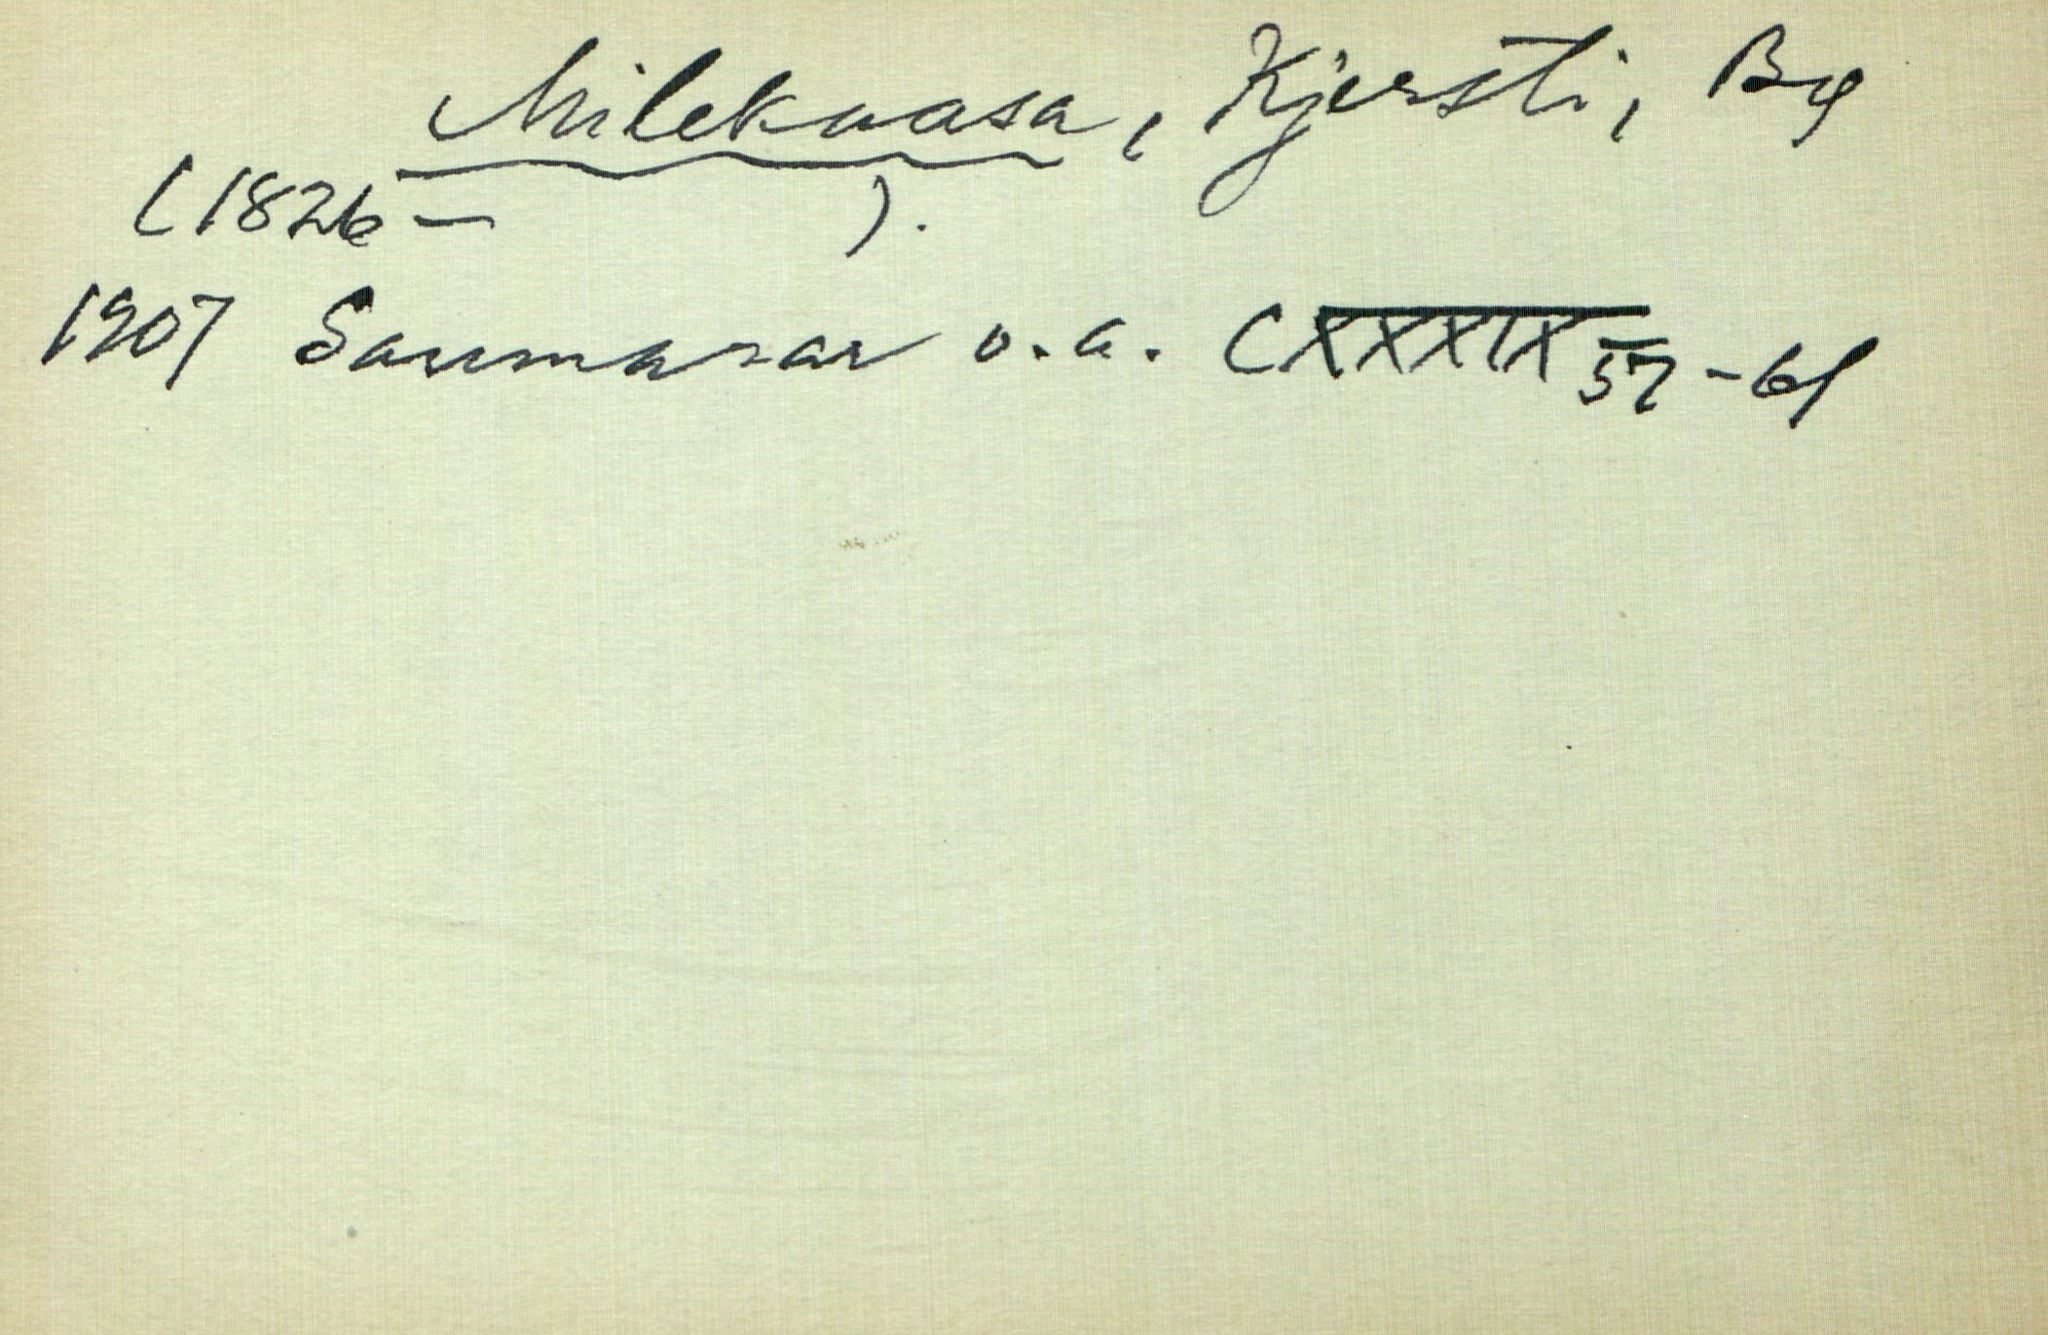 Milekvasa, Kjersti, Bø
(1826 – ).
1907 Saumarar o.a. CXXXIX 57-61